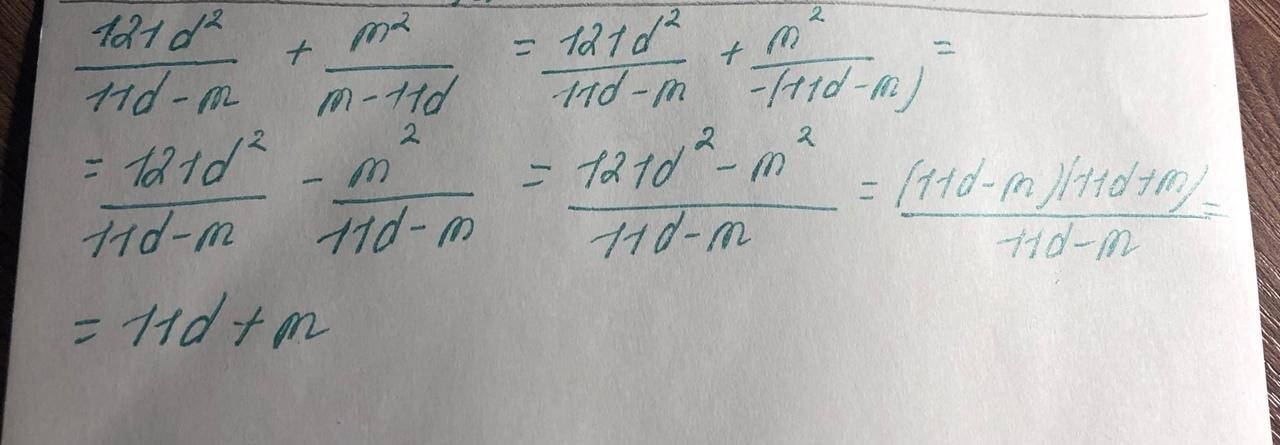 121d²/(11d-m) + m²/(m-11d) = 121d²/(11d-m) + m²/(-(11d-m)) =
= 121d²/(11d-m) - m²/(11d-m) = (121d²-m²)/(11d-m) = (11d-m)(11d+m)/(11d-m) =
= 11d+m